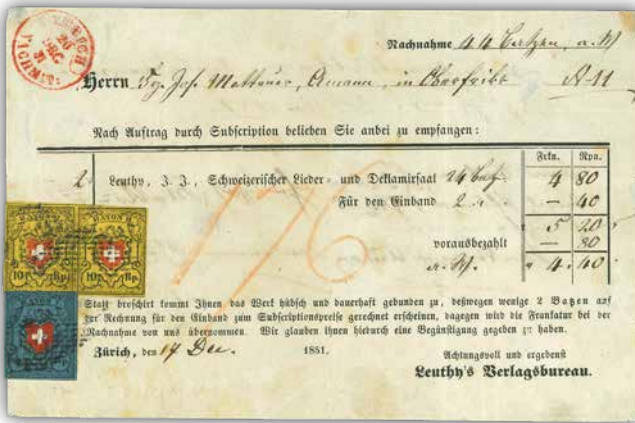 ZÜRICH
20
DEC
51
NACHMITT.
Nachnahme 44 Batzen, a. W.
Herrn Joh. Mattauer, Amann, in Oberfribs N 11
Nach Auftrag durch Subscription belieben Sie anbei zu empfangen:
Frkn. Rpn.
2 Leuthy, J. J., Schweizerischer Lieder- und Deklamirsaal 24 Batz. 4 80
Für den Einband 2 " — 40
5 20
vorausbezahlt — 80
a. W. 4. 40
176
RAYON II RAYON II
10 Rp. 10 Rp.
RAYON I
Statt broschirt kommt Ihnen das Werk hübsch und dauerhaft gebunden zu, deßwegen wenige 2 Batzen auf
der Rechnung für den Einband zum Subscriptionspreise gerechnet erscheinen, dagegen wird die Frankatur bei der
Nachnahme von uns übernommen. Wir glauben Ihnen hiedurch eine Begünstigung gegeben zu haben.
Zürich, den 17 Dec. 1851.
Achtungsvoll und ergebenst
Leuthy's Verlagsbureau.